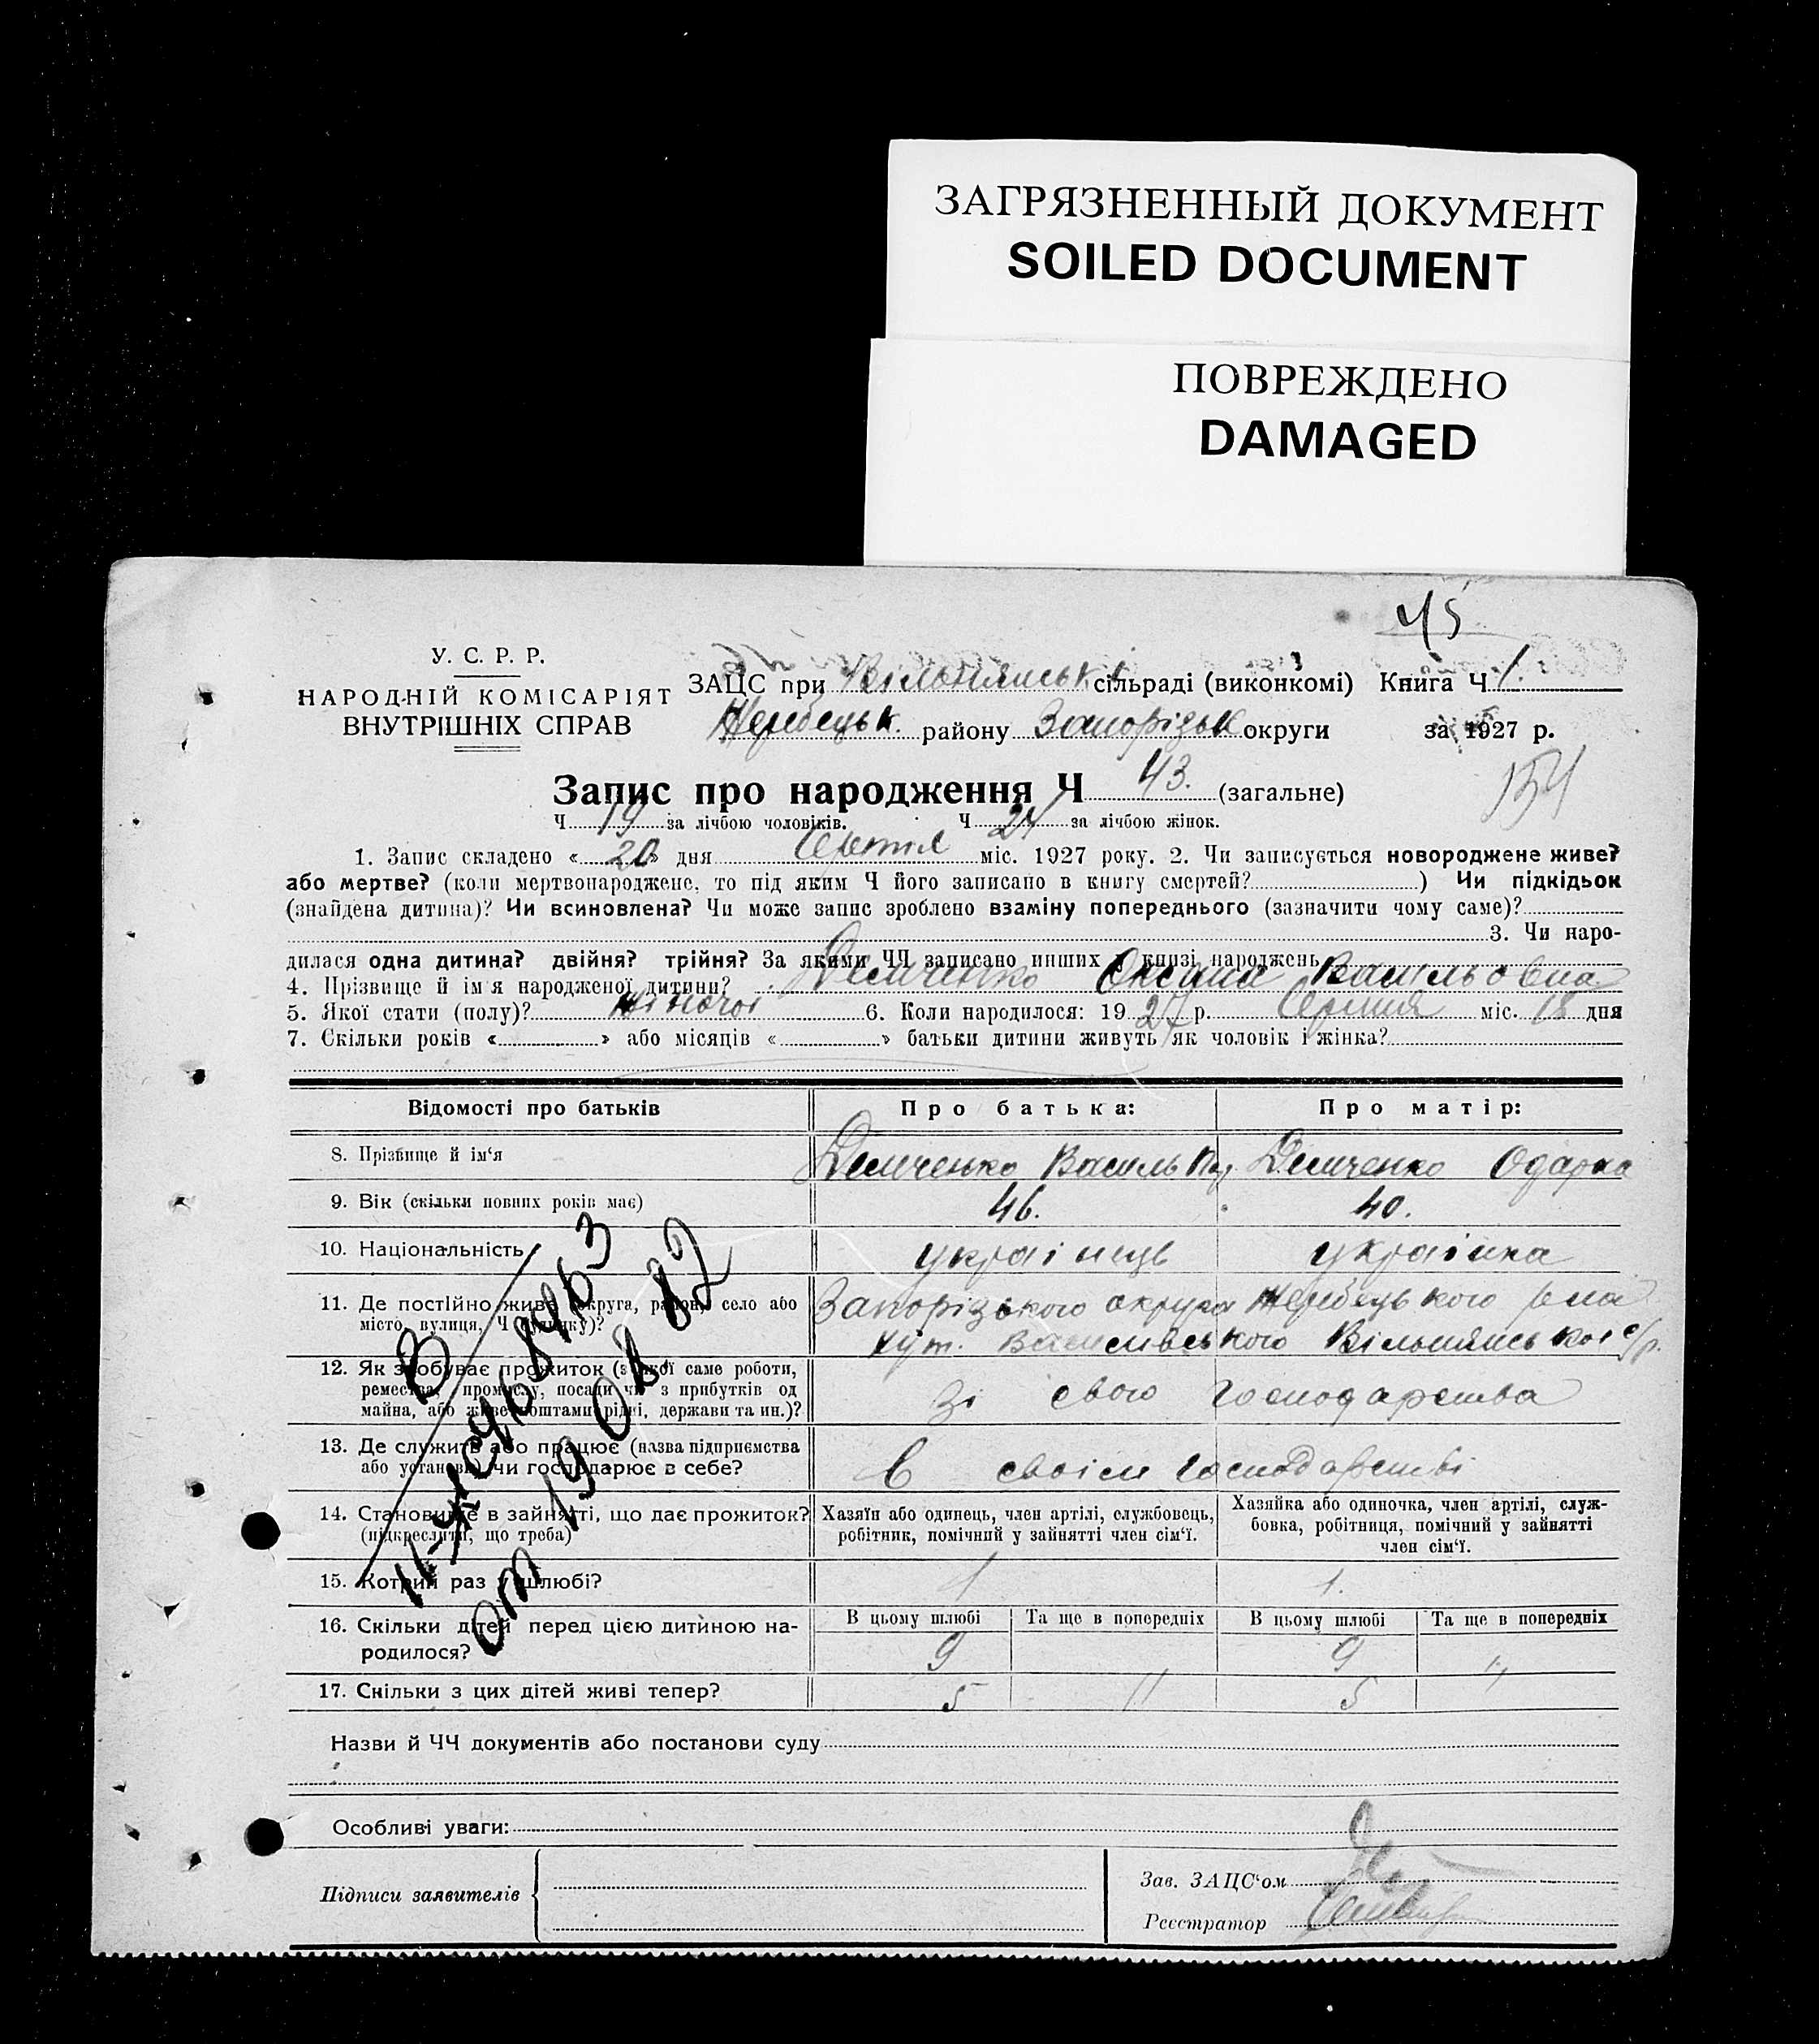 ЗАГРЯЗНЕННЫЙ ДОКУМЕНТ
SOILED DOCUMENT
ПОВРЕЖДЕНО
DAMAGED
45
У. С. Р. Р.
НАРОДНІЙ КОМІСАРІЯТ
ВНУТРІШНІХ СПРАВ
ЗАЦС при Вільнянськ. сільраді (виконкомі) Книга Ч 1.
Жеребецьк. району Запорізьк округи за 1927 р.
154
Запис про народження Ч 43. (загальне)
Ч 19 за лічбою чоловіків. Ч 24 за лічбою жінок.
1. Запис складено « 20 » дня Серпня міс. 1927 року. 2. Чи записується новороджене живе?
або мертве? (коли мертвонароджене, то під яким Ч його записано в книгу смертей? ) Чи підкідьок
(знайдена дитина)? Чи всиновлена? Чи може запис зроблено взаміну попереднього (зазначити чому саме)?
3. Чи наро-
дилася одна дитина? двійня? трійня? За якими ЧЧ записано инших у книзі народжень
4. Прізвище й ім'я народженої дитини? Демченко Оксана Васильовна
5. Якої стати (полу)? жіночої 6. Коли народилося: 1927 р. Серпня міс. 18 дня
7. Скільки років « » або місяців « » батьки дитини живуть як чоловік і жінка?
Відомості про батьків Про батька: Про матір:
8. Прізвище й ім'я Демченко Василь Демченко Одарка
9. Вік (скільки повних років має) 46. 40.
10. Національність українець українка
11. Де постійно живе (округа, район, село або Запорізького округа Жеребецького р-на
місто, вулиця, Ч будинку)? хут. Василівського Вільнянської с/р.
12. Як здобуває прожиток (з якої саме роботи,
ремества, промислу, посади чи з прибутків од зі свого господарства
майна, або живе коштами рідні, держави та ин.)?
13. Де служить або працює (назва підприємства
або установи) чи господарює в себе? в своїм господарстві
14. Становище в зайнятті, що дає прожиток? Хазяїн або одинець, член артілі, службовець, Хазяйка або одиночка, член артілі, служ-
(підкреслити, що треба) робітник, помічний у зайнятті член сім'ї. бовка, робітниця, помічний у зайнятті
член сім'ї.
15. Котрий раз у шлюбі? 1 1.
16. Скільки дітей перед цією дитиною на- В цьому шлюбі Та ще в попередніх В цьому шлюбі Та ще в попередніх
родилося? 9 9 "
17. Скільки з цих дітей живі тепер? 5 " 5
Назви й ЧЧ документів або постанови суду
Особливі уваги:
Підписи заявителів
Зав. ЗАЦС'ом
Реєстратор
от 19 08 82